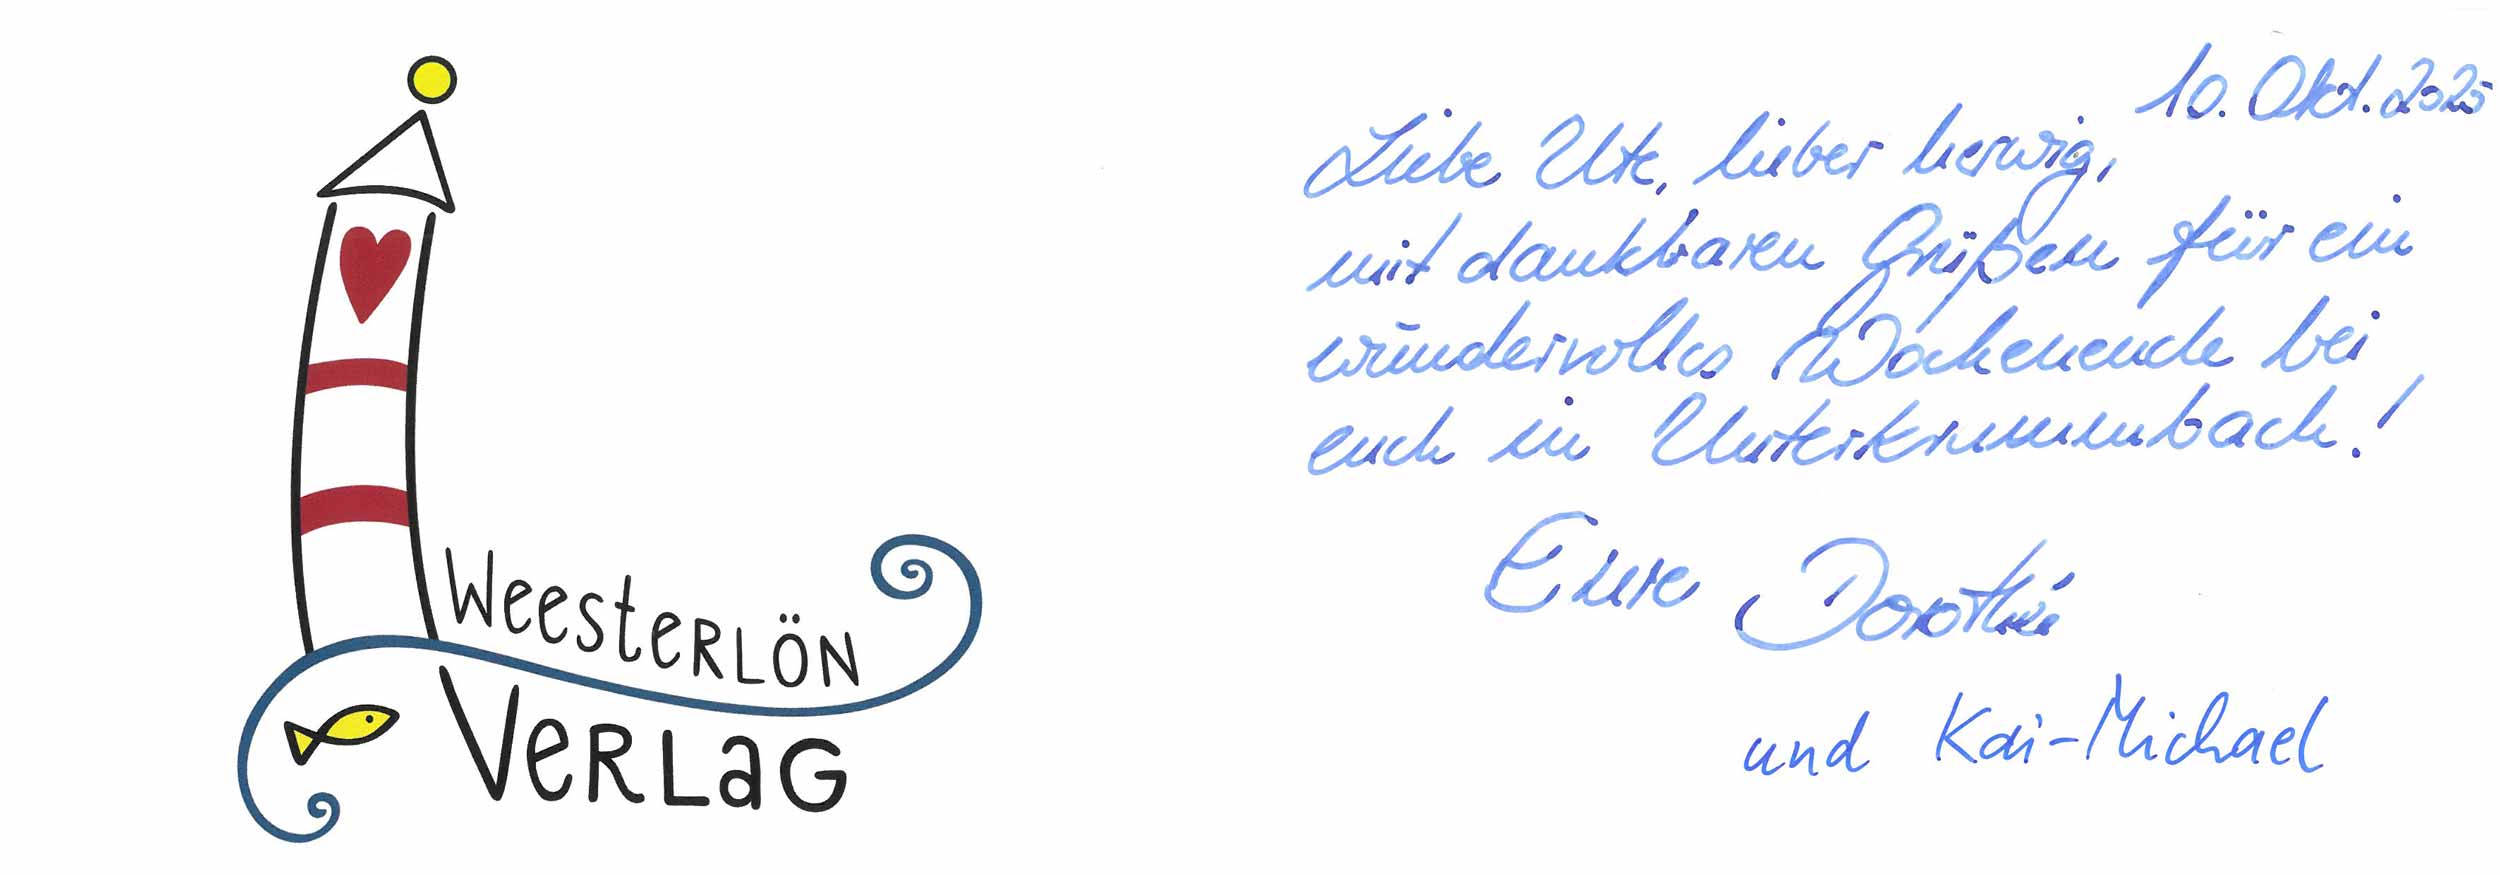 WeesteRLÖN
VeRLaG
10. Okt. 2025
Liebe Ute, lieber Herwig,
mit dankbaren Grüßen für ein
wundervolles Wochenende bei
euch in Unterkrumbach!
Eure Dorothei
und Kai-Michael